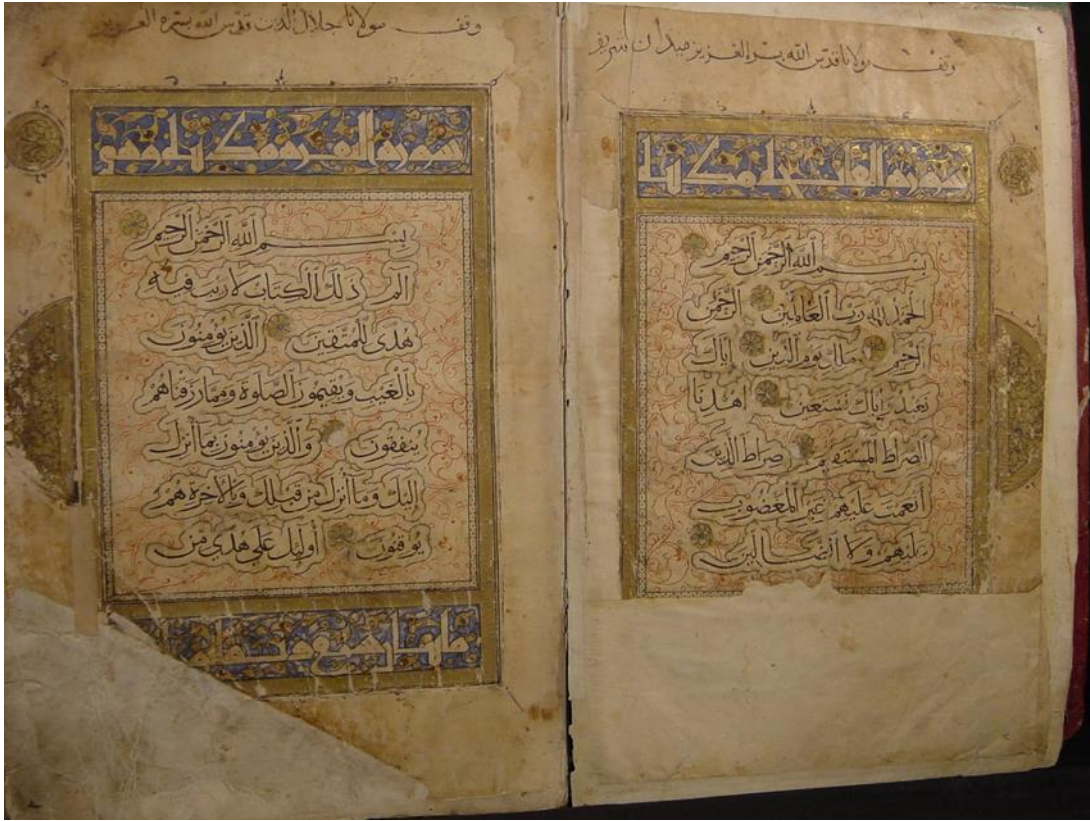 وقف مولانا قدس الله بسره العزيز ميدان شريف
سورة الفاتحة مكية
بسم الله الرحمن الرحيم
الحمد لله رب العالمين الرحمن
الرحيم ملك يوم الدين إياك
نعبد وإياك نستعين اهدنا
الصراط المستقيم صراط الذين
أنعمت عليهم غير المغضوب
عليهم ولا الضالين
وقف مولانا جلال الدين قدس الله بسره العزيز
سورة البقرة
بسم الله الرحمن الرحيم
الم ذلك الكتاب لا ريب فيه
هدى للمتقين الذين يؤمنون
بالغيب ويقيمون الصلوة ومما رزقناهم
ينفقون والذين يؤمنون بما أنزل
إليك وما أنزل من قبلك وبالآخرة هم
يوقنون أولئك على هدى من